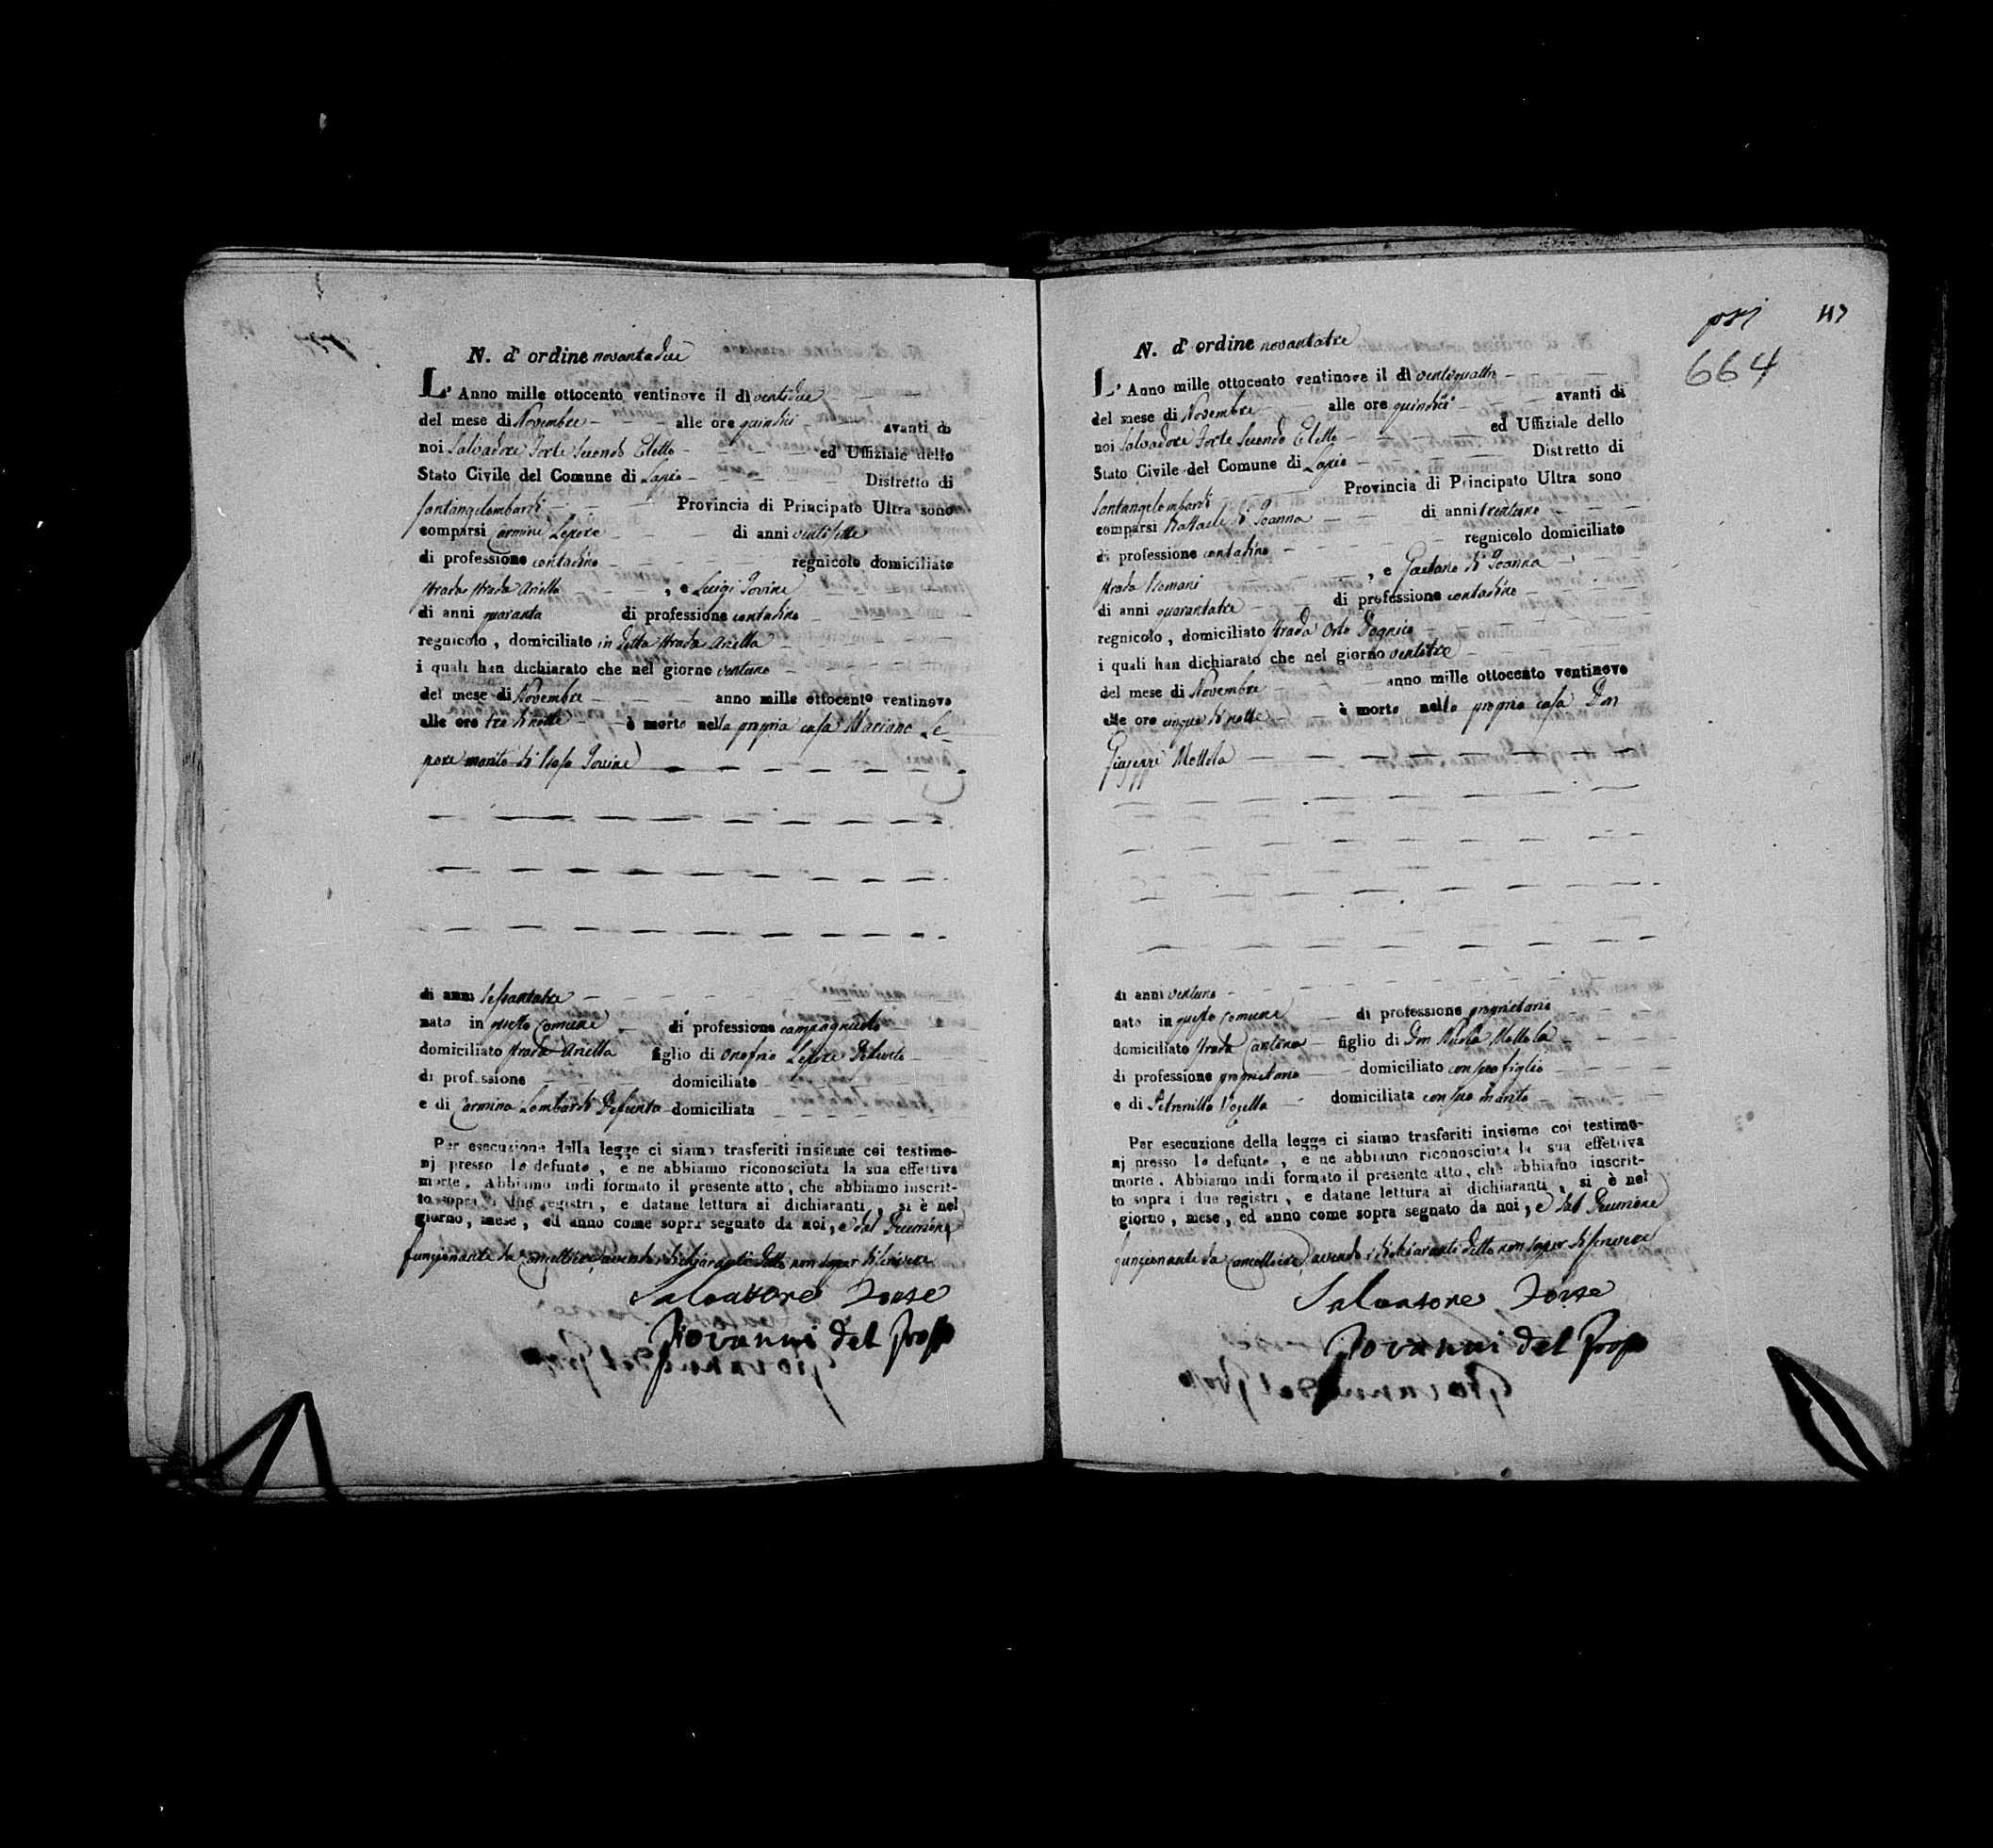 N. d' ordine novantadue
L' Anno mille ottocento ventinove il dì ventidue
del mese di Novembre alle ore quindici avanti di
noi Salvadore Forte Secondo Eletto ed Uffiziale dello
Stato Civile del Comune di Lapio Distretto di
Santangelombardi Provincia di Principato Ultra sono
comparsi Carmine Lepore di anni ventisette
di professione contadino regnicolo domiciliato
strada strada Ariella , e Luigi Iovine
di anni quaranta di professione contadino
regnicolo , domiciliato in detta strada Ariella
i quali han dichiarato che nel giorno ventuno
del mese di Novembre anno mille ottocento ventinove
alle ore tre di notte è morto nella propria casa Mariano Le-
pore marito di Rosa Iovine
di anni sessantatre
nato in questo Comune di professione campagnuolo
domiciliato strada Ariella figlio di Onofrio Lepore Defunto
di professione domiciliato
e di Carmina Lombardi Defunta domiciliata
Per esecuzione della legge ci siamo trasferiti insieme coi testimo-
nj presso lo defunto , e ne abbiamo riconosciuta la sua effettiva
morte. Abbiamo indi formato il presente atto, che abbiamo inscrit-
to sopra i due registri, e datane lettura ai dichiaranti, si è nel
giorno, mese, ed anno come sopra segnato da noi, e dal Decurione
funzionante da Cancelliere, avendo i dichiaranti detto non saper di scrivere
Salvatore Forte
Giovanni del Grosso
117
664
N. d' ordine novantatre
L' Anno mille ottocento ventinove il dì ventiquattro
del mese di Novembre alle ore quindici avanti di
noi Salvadore Forte Secondo Eletto ed Uffiziale dello
Stato Civile del Comune di Lapio Distretto di
Santangelombardi Provincia di Principato Ultra sono
comparsi Raffaele di Ioanna di anni trentuno
di professione contadino regnicolo domiciliato
strada Romani , e Gaetano di Ioanna
di anni quarantatre di professione contadino
regnicolo , domiciliato strada Orto
i quali han dichiarato che nel giorno ventitre
del mese di Novembre anno mille ottocento ventinove
alle ore cinque di notte è morto nella propria casa Don
Giuseppe Mottola
di anni ventuno
nato in questo Comune di professione proprietario
domiciliato strada Cantina figlio di Don Nicola Mottola
di professione proprietario domiciliato con suo figlio
e di Petronilla Vozella domiciliata con suo marito
Per esecuzione della legge ci siamo trasferiti insieme coi testimo-
nj presso lo defunto , e ne abbiamo riconosciuta la sua effettiva
morte. Abbiamo indi formato il presente atto, che abbiamo inscrit-
to sopra i due registri, e datane lettura ai dichiaranti, si è nel
giorno, mese, ed anno come sopra segnato da noi, e dal Decurione
funzionante da Cancelliere, avendo i dichiaranti detto non saper di scrivere
Salvatore Forte
Giovanni del Grosso